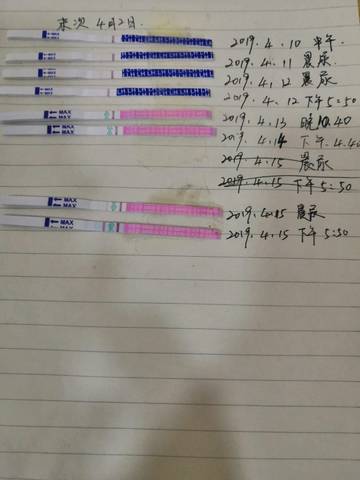 末次 4月2日.
2019.4.10 中午
2019.4.11 晨尿
2019.4.12 晨尿
2019.4.12 下午5:50
2019.4.13 晚10.40
2019.4.14 下午.4.40
2019.4.15 晨尿
2019.4.15 下午5:50
2019.4.15 晨尿
2019.4.15 下午5:50
MAX
MAX
MAX
MAX
MAX
MAX
MAX
MAX